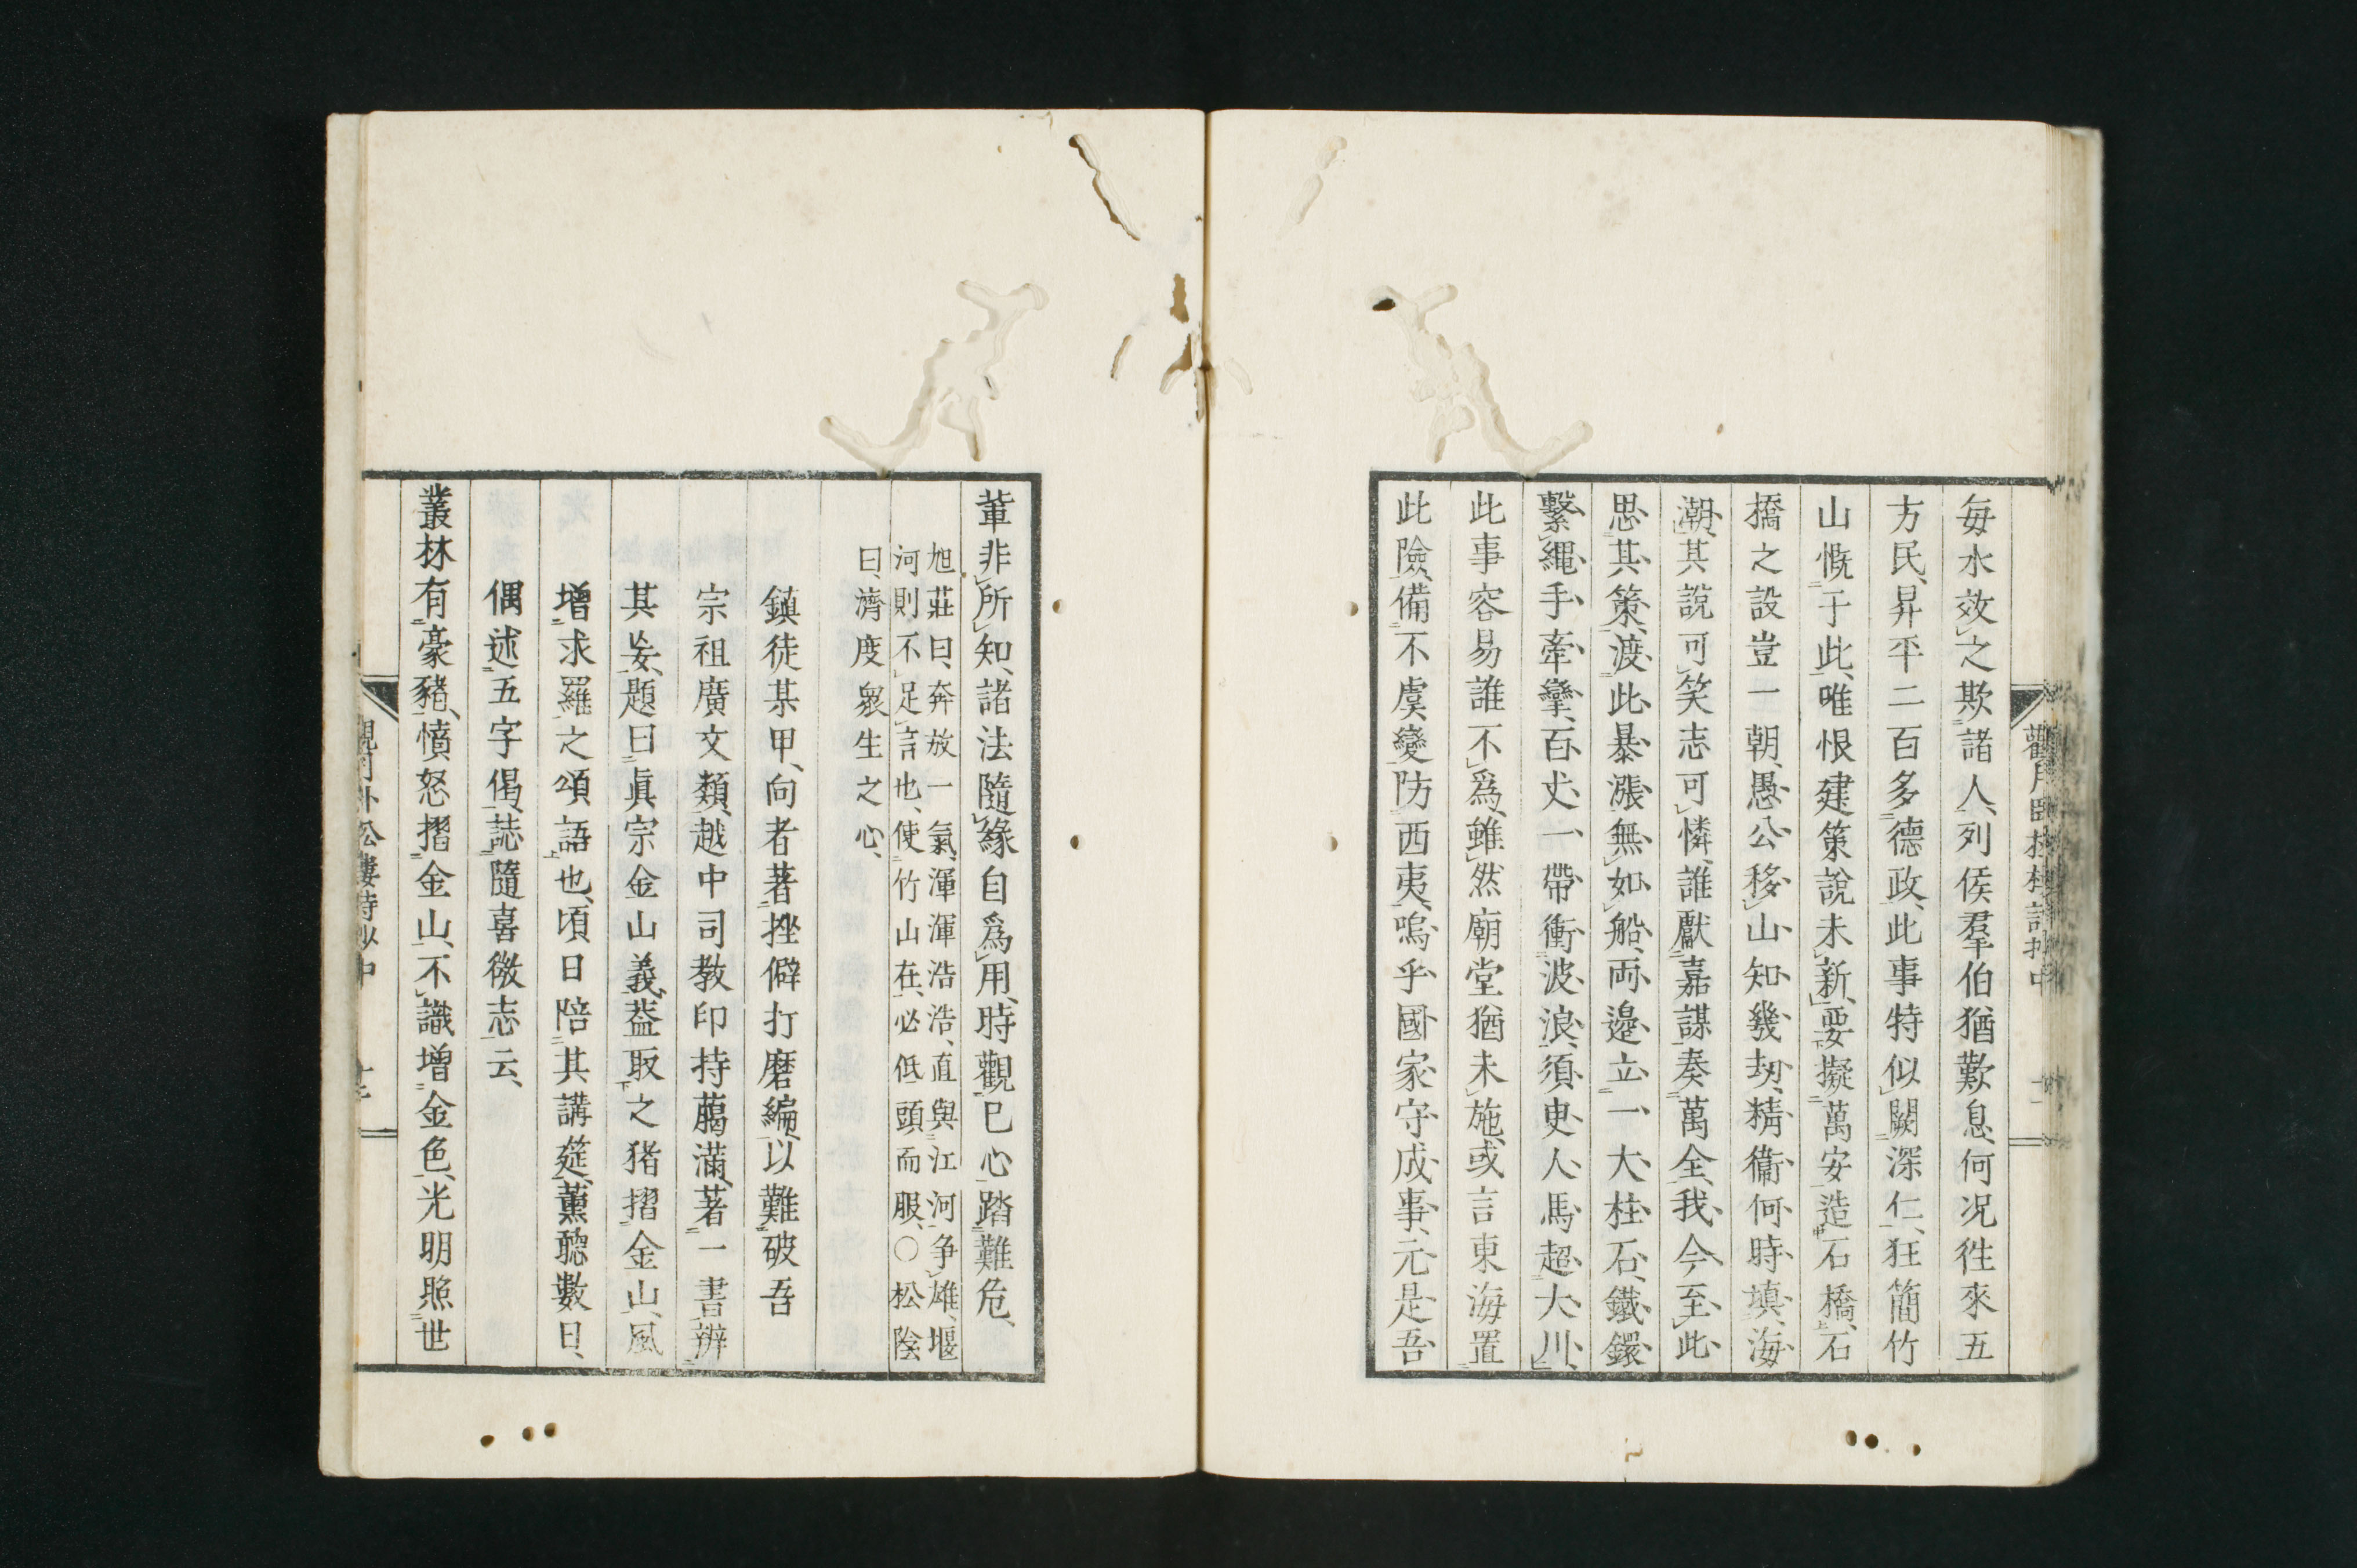 毎水效之欺諸人、列侯羣伯猶歎息、何况徃來五
方民、昇平二百多德政、此事特似闕深仁、狂簡竹
山慨于此、唯恨建策說未新、要擬萬安造石橋、石
橋之設豈一朝、愚公移山知幾劫、精衞何時塡海
潮、其說可笑志可憐、誰獻嘉謀奏萬全、我今至此
思其策、渡此暴漲無如船、両邊立一大柱石、鐵鐶
繫繩手牽攣、百丈一帶衝波浪、須臾人馬超大川、
此事容易誰不爲、雖然廟堂猶未施、或言東海置
此險、備不虞變防西夷、嗚乎國家守成事、元是吾
輩非所知、諸法隨緣自爲用、時觀已心踏難危、
旭莊曰、奔放一氣、渾渾浩浩、直與江河争雄、堰
河則不足言也、使竹山在、必低頭而服、〇松陰
曰、濟度衆生之心、
鎮徒某甲、向者著挫僻打磨編、以難破吾
宗祖廣文類、越中司教印持藹滿、著一書、辨
其妄、題曰眞宗金山義、葢取之猪摺金山、風
増求羅之頌語也、頃日陪其講筵、薫聽數日、
偶述五字偈、誌隨喜微志云、
叢林有豪豬、憤怒摺金山、不識增金色、光明照世